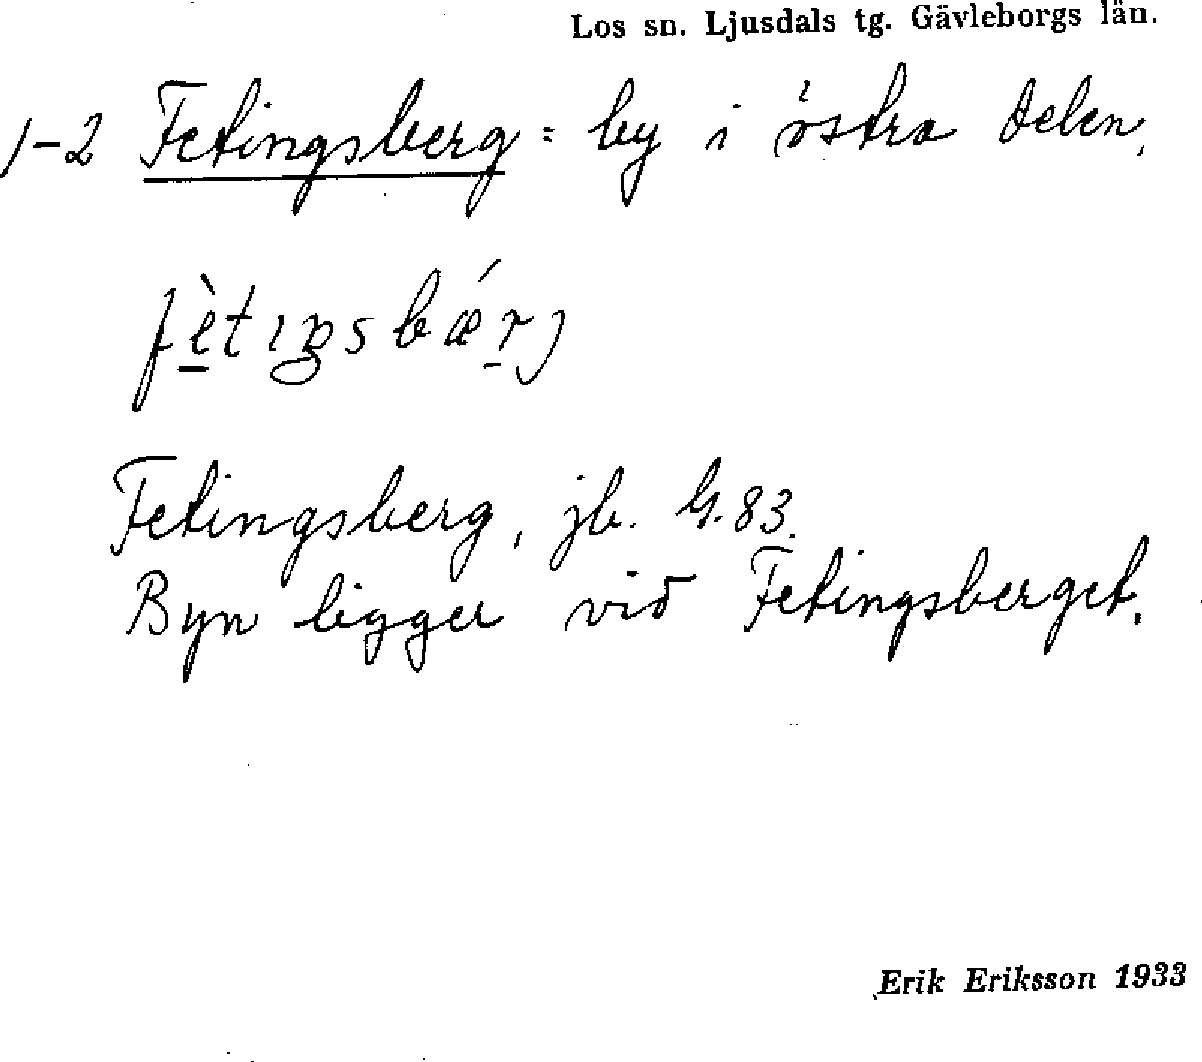 Los sn. Ljusdals tg. Gävleborgs län.
1-2 Fetingsberg = by i östra delen.
fètıŋsbǽrj
Fetingsberg, jb. G. 83.
Byn ligger vid Fetingsberget.
Erik Eriksson 1933